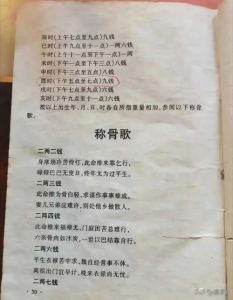 辰时(上午七点至九点)九钱
巳时(上午九点至十一点)一两六钱
午时(上午十一点至下午一点)一两
未时(下午一点至三点)八钱
申时(下午三点至五点)八钱
酉时(下午五点至七点)九钱
戌时(下午七点至九点)六钱
亥时(下午九点至十一点)六钱
按以上出生年、月、日、时各自所值重量相加,参阅以下称骨
歌。
称骨歌
二两二钱
身寒骨冷苦伶仃,此命推来靠乞行,
碌碌巴巴无度日,终年无为过平生。
二两三钱
此命推为骨自轻,求谋作事事难成,
妻儿兄弟应难许,别处他乡做散人。
二两四钱
此命推来福禄无,门庭困苦总难行,
六亲骨肉如冰炭,一世以巴结靠自行。
二两六钱
平生衣禄苦中求,独自经营事不休,
离祖出门宜早计,晚来衣禄尚无忧。
二两七钱
·30·